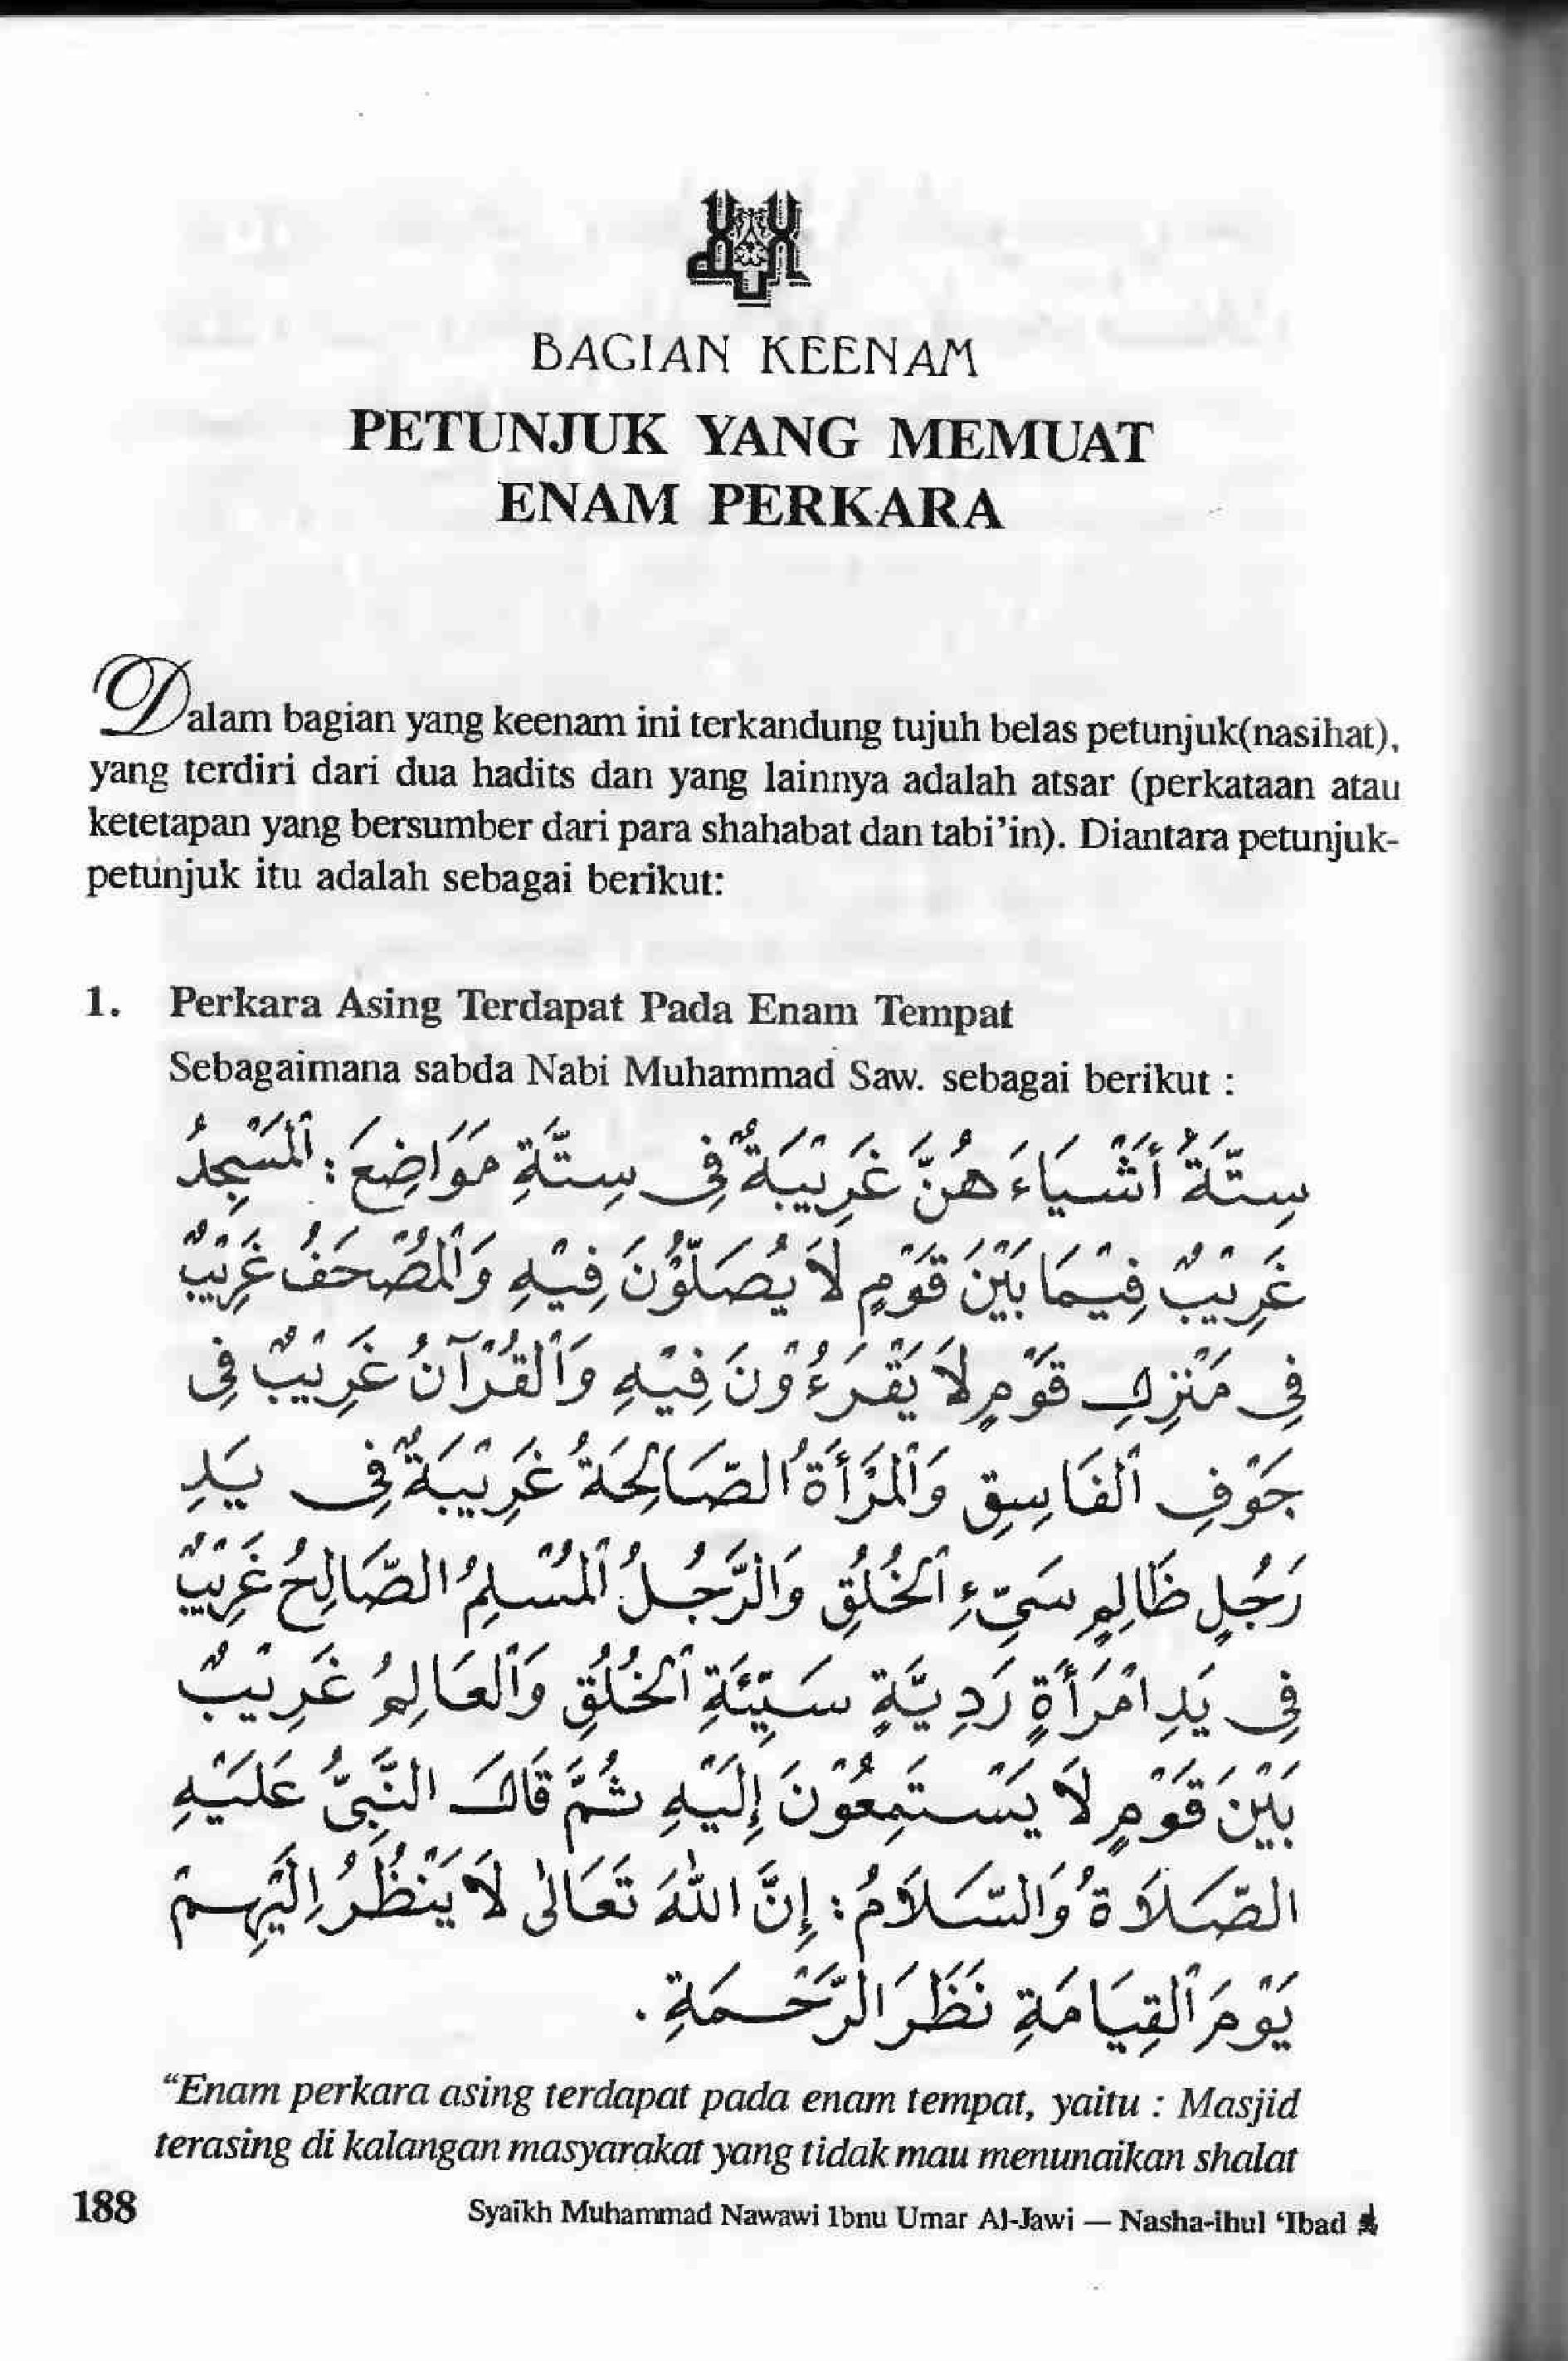 BAGIAN KEENAM
PETUNJUK YANG MEMUAT
ENAM PERKARA
Dalam bagian yang keenam ini terkandung tujuh belas petunjuk(nasihat),
yang terdiri dari dua hadits dan yang lainnya adalah atsar (perkataan atau
ketetapan yang bersumber dari para shahabat dan tabi'in). Diantara petunjuk-
petunjuk itu adalah sebagai berikut:
1. Perkara Asing Terdapat Pada Enam Tempat
Sebagaimana sabda Nabi Muhammad Saw. sebagai berikut :
سِتَّةُ أَشْيَاءَ هُنَّ غَرِيْبَةٌ فِى سِتَّةِ مَوَاضِعَ : اَلْمَسْجِدُ
غَرِيْبٌ فِيْمَا بَيْنَ قَوْمٍ لَا يُصَلُّوْنَ فِيْهِ وَالْمُصْحَفُ غَرِيْبٌ
فِى مَنْزِلِ قَوْمٍ لَا يَقْرَءُوْنَ فِيْهِ وَالْقُرْآنُ غَرِيْبٌ فِى
جَوْفِ الْفَاسِقِ وَالْمَرْأَةُ الصَّالِحَةُ غَرِيْبَةٌ فِى يَدِ
رَجُلٍ ظَالِمٍ سَيِّءِ الْخُلُقِ وَالرَّجُلُ الْمُسْلِمُ الصَّالِحُ غَرِيْبٌ
فِى يَدِ امْرَأَةٍ رَدِيَّةٍ سَيِّئَةِ الْخُلُقِ وَالْعَالِمُ غَرِيْبٌ
بَيْنَ قَوْمٍ لَا يَسْتَمِعُوْنَ إِلَيْهِ ثُمَّ قَالَ النَّبِيُّ عَلَيْهِ
الصَّلَاةُ وَالسَّلَامُ : إِنَّ اللهَ تَعَالَى لَا يَنْظُرُ إِلَيْهِمْ
يَوْمَ الْقِيَامَةِ نَظَرَ الرَّحْمَةِ .
“Enam perkara asing terdapat pada enam tempat, yaitu : Masjid
terasing di kalangan masyarakat yang tidak mau menunaikan shalat
188 Syaikh Muhammad Nawawi Ibnu Umar Al-Jawi — Nasha-ihul ‘Ibad